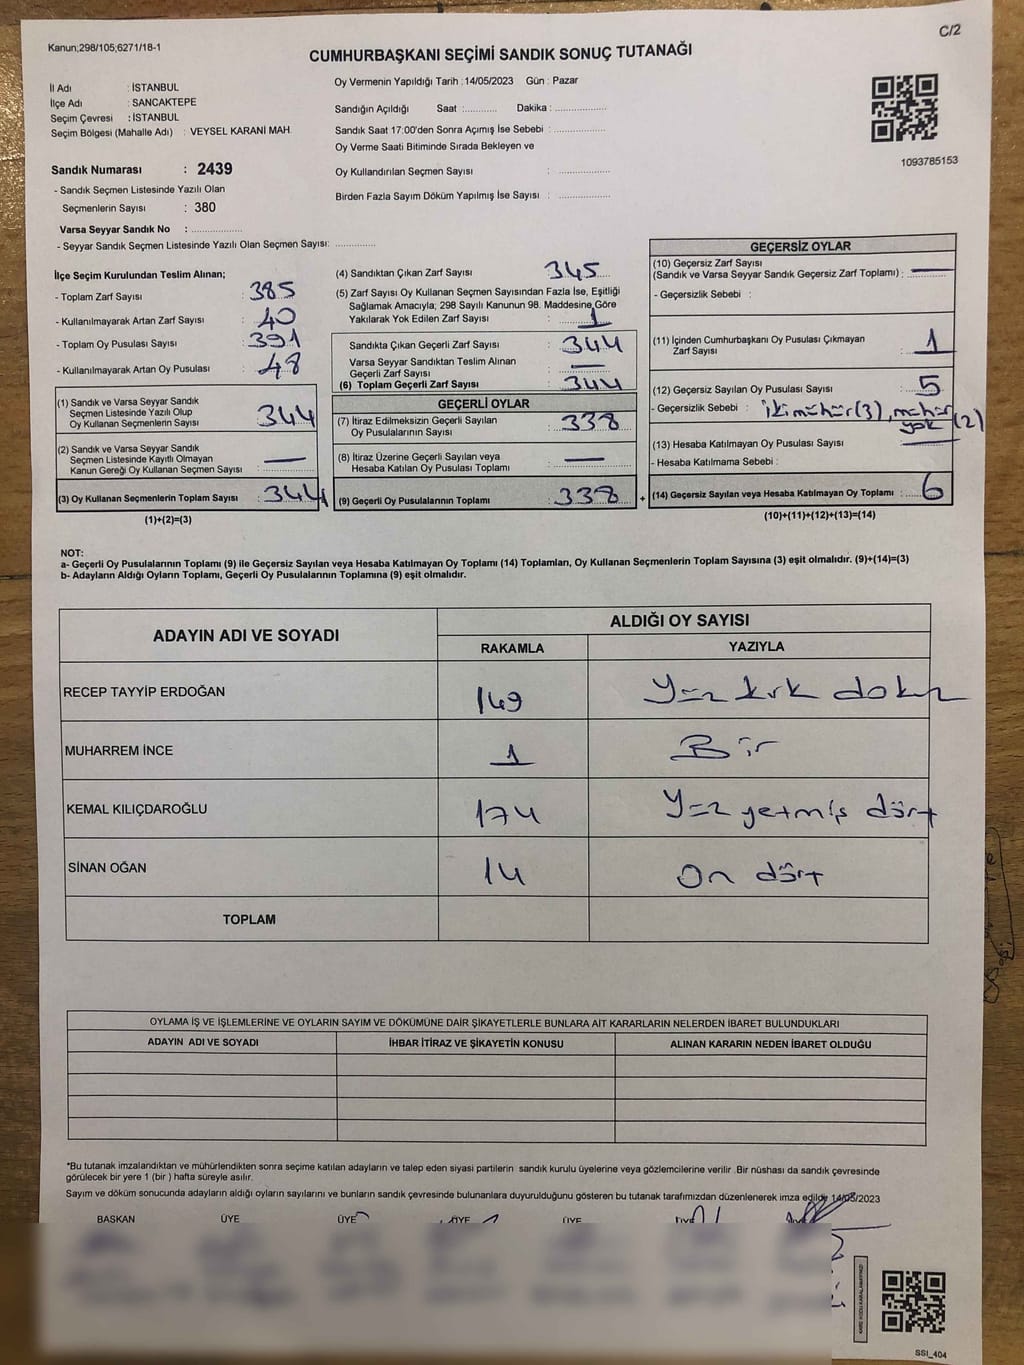 C/2
Kanun;298/105;6271/18-1
CUMHURBAŞKANI SEÇİMİ SANDIK SONUÇ TUTANAĞI
İl Adı : İSTANBUL
İlçe Adı : SANCAKTEPE
Seçim Çevresi : İSTANBUL
Seçim Bölgesi (Mahalle Adı) : VEYSEL KARANİ MAH.
Sandık Numarası : 2439
- Sandık Seçmen Listesinde Yazılı Olan
Seçmenlerin Sayısı : 380
Varsa Seyyar Sandık No : ....................
- Seyyar Sandık Seçmen Listesinde Yazılı Olan Seçmen Sayısı: ...............
Oy Vermenin Yapıldığı Tarih :14/05/2023 Gün : Pazar
Sandığın Açıldığı Saat :............ Dakika : ...................
Sandık Saat 17:00'den Sonra Açımış İse Sebebi : ...................
Oy Verme Saati Bitiminde Sırada Bekleyen ve
Oy Kullandırılan Seçmen Sayısı : ...................
Birden Fazla Sayım Döküm Yapılmış İse Sayısı : ...................
1093785153
İlçe Seçim Kurulundan Teslim Alınan;
- Toplam Zarf Sayısı : 385
- Kullanılmayarak Artan Zarf Sayısı : 40
- Toplam Oy Pusulası Sayısı : 391
- Kullanılmayarak Artan Oy Pusulası : 48
(1) Sandık ve Varsa Seyyar Sandık
Seçmen Listesinde Yazılı Olup
Oy Kullanan Seçmenlerin Sayısı : 344
(2) Sandık ve Varsa Seyyar Sandık
Seçmen Listesinde Kayıtlı Olmayan
Kanun Gereği Oy Kullanan Seçmen Sayısı : —
(3) Oy Kullanan Seçmenlerin Toplam Sayısı : 344
(1)+(2)=(3)
(4) Sandıktan Çıkan Zarf Sayısı : 345
(5) Zarf Sayısı Oy Kullanan Seçmen Sayısından Fazla İse, Eşitliği
Sağlamak Amacıyla; 298 Sayılı Kanunun 98. Maddesine Göre
Yakılarak Yok Edilen Zarf Sayısı : 1
Sandıkta Çıkan Geçerli Zarf Sayısı : 344
Varsa Seyyar Sandıktan Teslim Alınan
Geçerli Zarf Sayısı : —
(6) Toplam Geçerli Zarf Sayısı : 344
GEÇERLİ OYLAR
(7) İtiraz Edilmeksizin Geçerli Sayılan
Oy Pusulalarının Sayısı : 338
(8) İtiraz Üzerine Geçerli Sayılan veya
Hesaba Katılan Oy Pusulası Toplamı : —
(9) Geçerli Oy Pusulalarının Toplamı : 338
+
GEÇERSİZ OYLAR
(10) Geçersiz Zarf Sayısı
(Sandık ve Varsa Seyyar Sandık Geçersiz Zarf Toplamı) : —
- Geçersizlik Sebebi :
(11) İçinden Cumhurbaşkanı Oy Pusulası Çıkmayan
Zarf Sayısı : 1
(12) Geçersiz Sayılan Oy Pusulası Sayısı : 5
- Geçersizlik Sebebi : iki mühür (3), mühür
yok (2)
(13) Hesaba Katılmayan Oy Pusulası Sayısı : —
- Hesaba Katılmama Sebebi :
(14) Geçersiz Sayılan veya Hesaba Katılmayan Oy Toplamı : 6
(10)+(11)+(12)+(13)=(14)
NOT:
a- Geçerli Oy Pusulalarının Toplamı (9) ile Geçersiz Sayılan veya Hesaba Katılmayan Oy Toplamı (14) Toplamları, Oy Kullanan Seçmenlerin Toplam Sayısına (3) eşit olmalıdır. (9)+(14)=(3)
b- Adayların Aldığı Oyların Toplamı, Geçerli Oy Pusulalarının Toplamına (9) eşit olmalıdır.
ADAYIN ADI VE SOYADI
ALDIĞI OY SAYISI
RAKAMLA YAZIYLA
RECEP TAYYİP ERDOĞAN 149 Yüz kırk dokuz
MUHARREM İNCE 1 Bir
KEMAL KILIÇDAROĞLU 174 Yüz yetmiş dört
SİNAN OĞAN 14 On dört
TOPLAM
OYLAMA İŞ VE İŞLEMLERİNE VE OYLARIN SAYIM VE DÖKÜMÜNE DAİR ŞİKAYETLERLE BUNLARA AİT KARARLARIN NELERDEN İBARET BULUNDUKLARI
ADAYIN ADI VE SOYADI İHBAR İTİRAZ VE ŞİKAYETİN KONUSU ALINAN KARARIN NEDEN İBARET OLDUĞU
*Bu tutanak imzalandıktan ve mühürlendikten sonra seçime katılan adayların ve talep eden siyasi partilerin sandık kurulu üyelerine veya gözlemcilerine verilir .Bir nüshası da sandık çevresinde
görülecek bir yere 1 (bir ) hafta süreyle asılır.
Sayım ve döküm sonucunda adayların aldığı oyların sayılarını ve bunların sandık çevresinde bulunanlara duyurulduğunu gösteren bu tutanak tarafımızdan düzenlenerek imza edildi. 14/05/2023
BAŞKAN ÜYE ÜYE ÜYE ÜYE ÜYE ÜYE
SSI_404